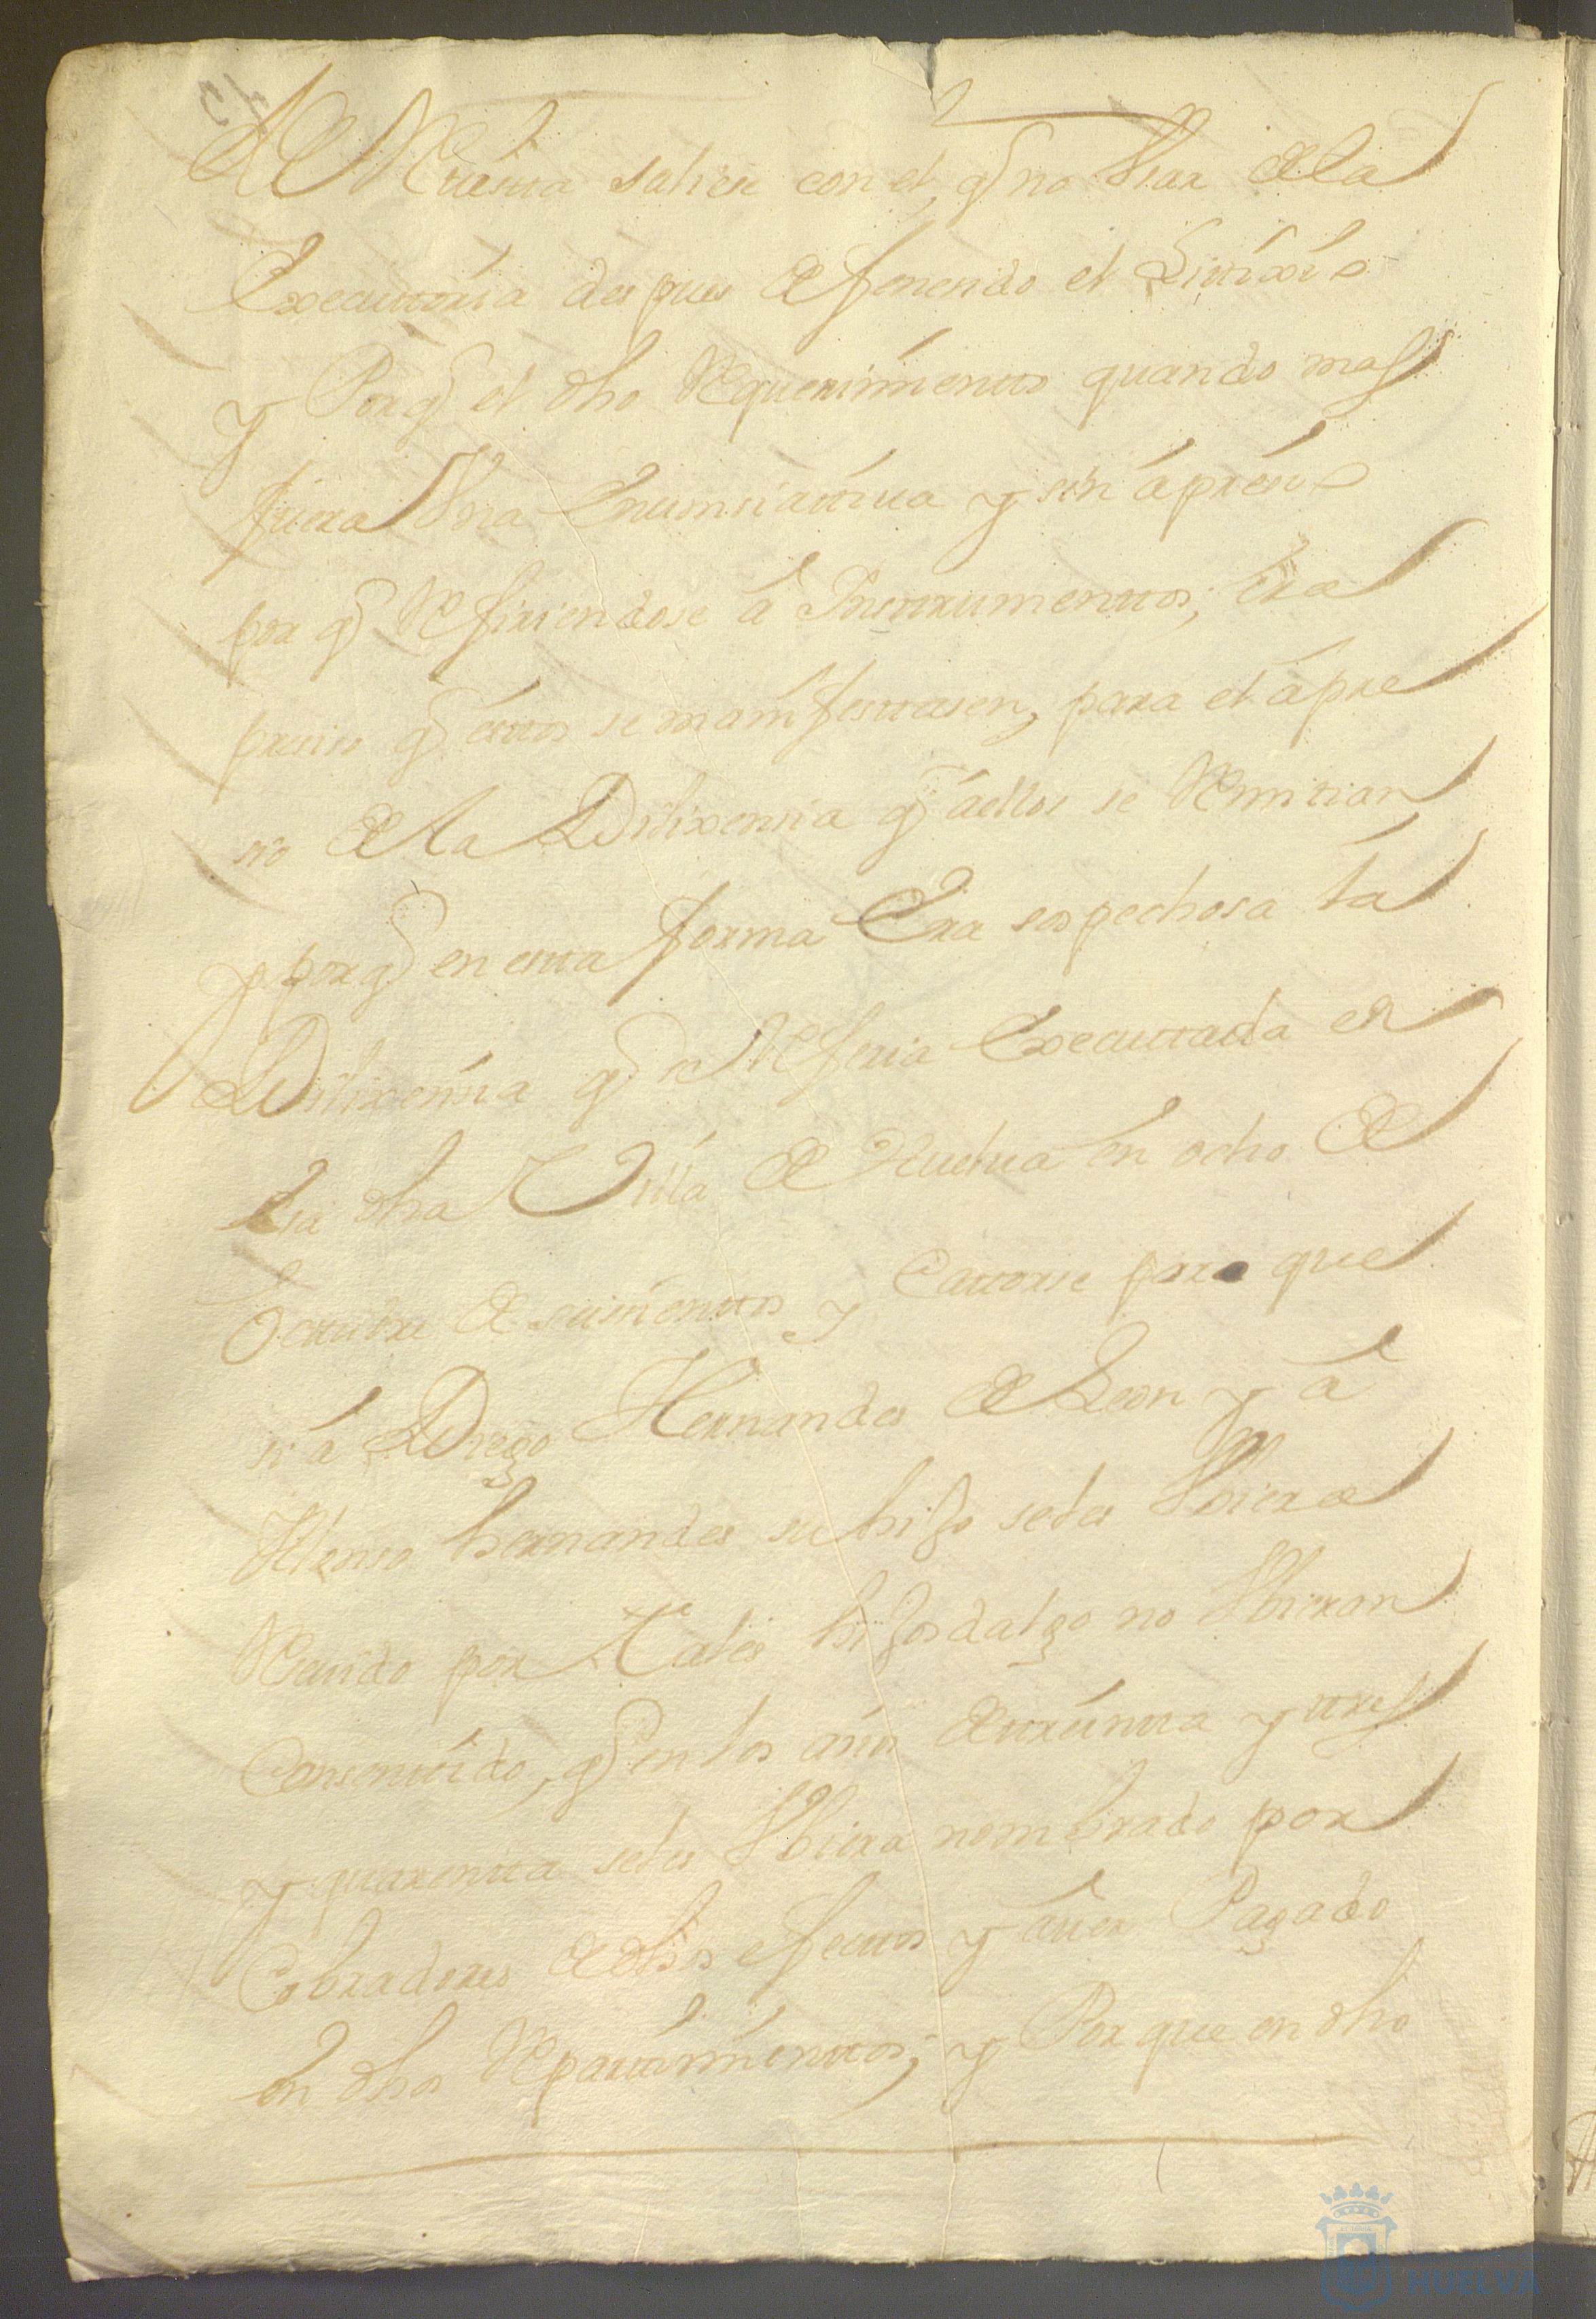 saber con el, q no Usar de la
Executoria despues de fenecido el Litixio
y Porq el dho Requerimiento quando mas
fuera Una Enumciatiua y sin apresio
por q Refiriendose â Instrumentos, era
presiso q estos se manifestasen, para el apre
sio de la Dilixensia q aellos se Remitian
y porq en esta forma Era sospechosa la
Dilixensia q se Referia Executada en
la dha Villa de Huelua en ocho de
Octubre de seisientos y Catorse para que
si â Diego Hernandes de Leon y â
Alonso hernandes su hijo seles Ubiera
Reciuido por Tales hijosdalgo no Ubieran
Consentido, q en los años de treinta y tres
y quarenta seles Ubiera nombrado por
Cobradores de dhos efectos y auer Pagado
en dhos Repartimientos; y Porque en dho
HUELVA